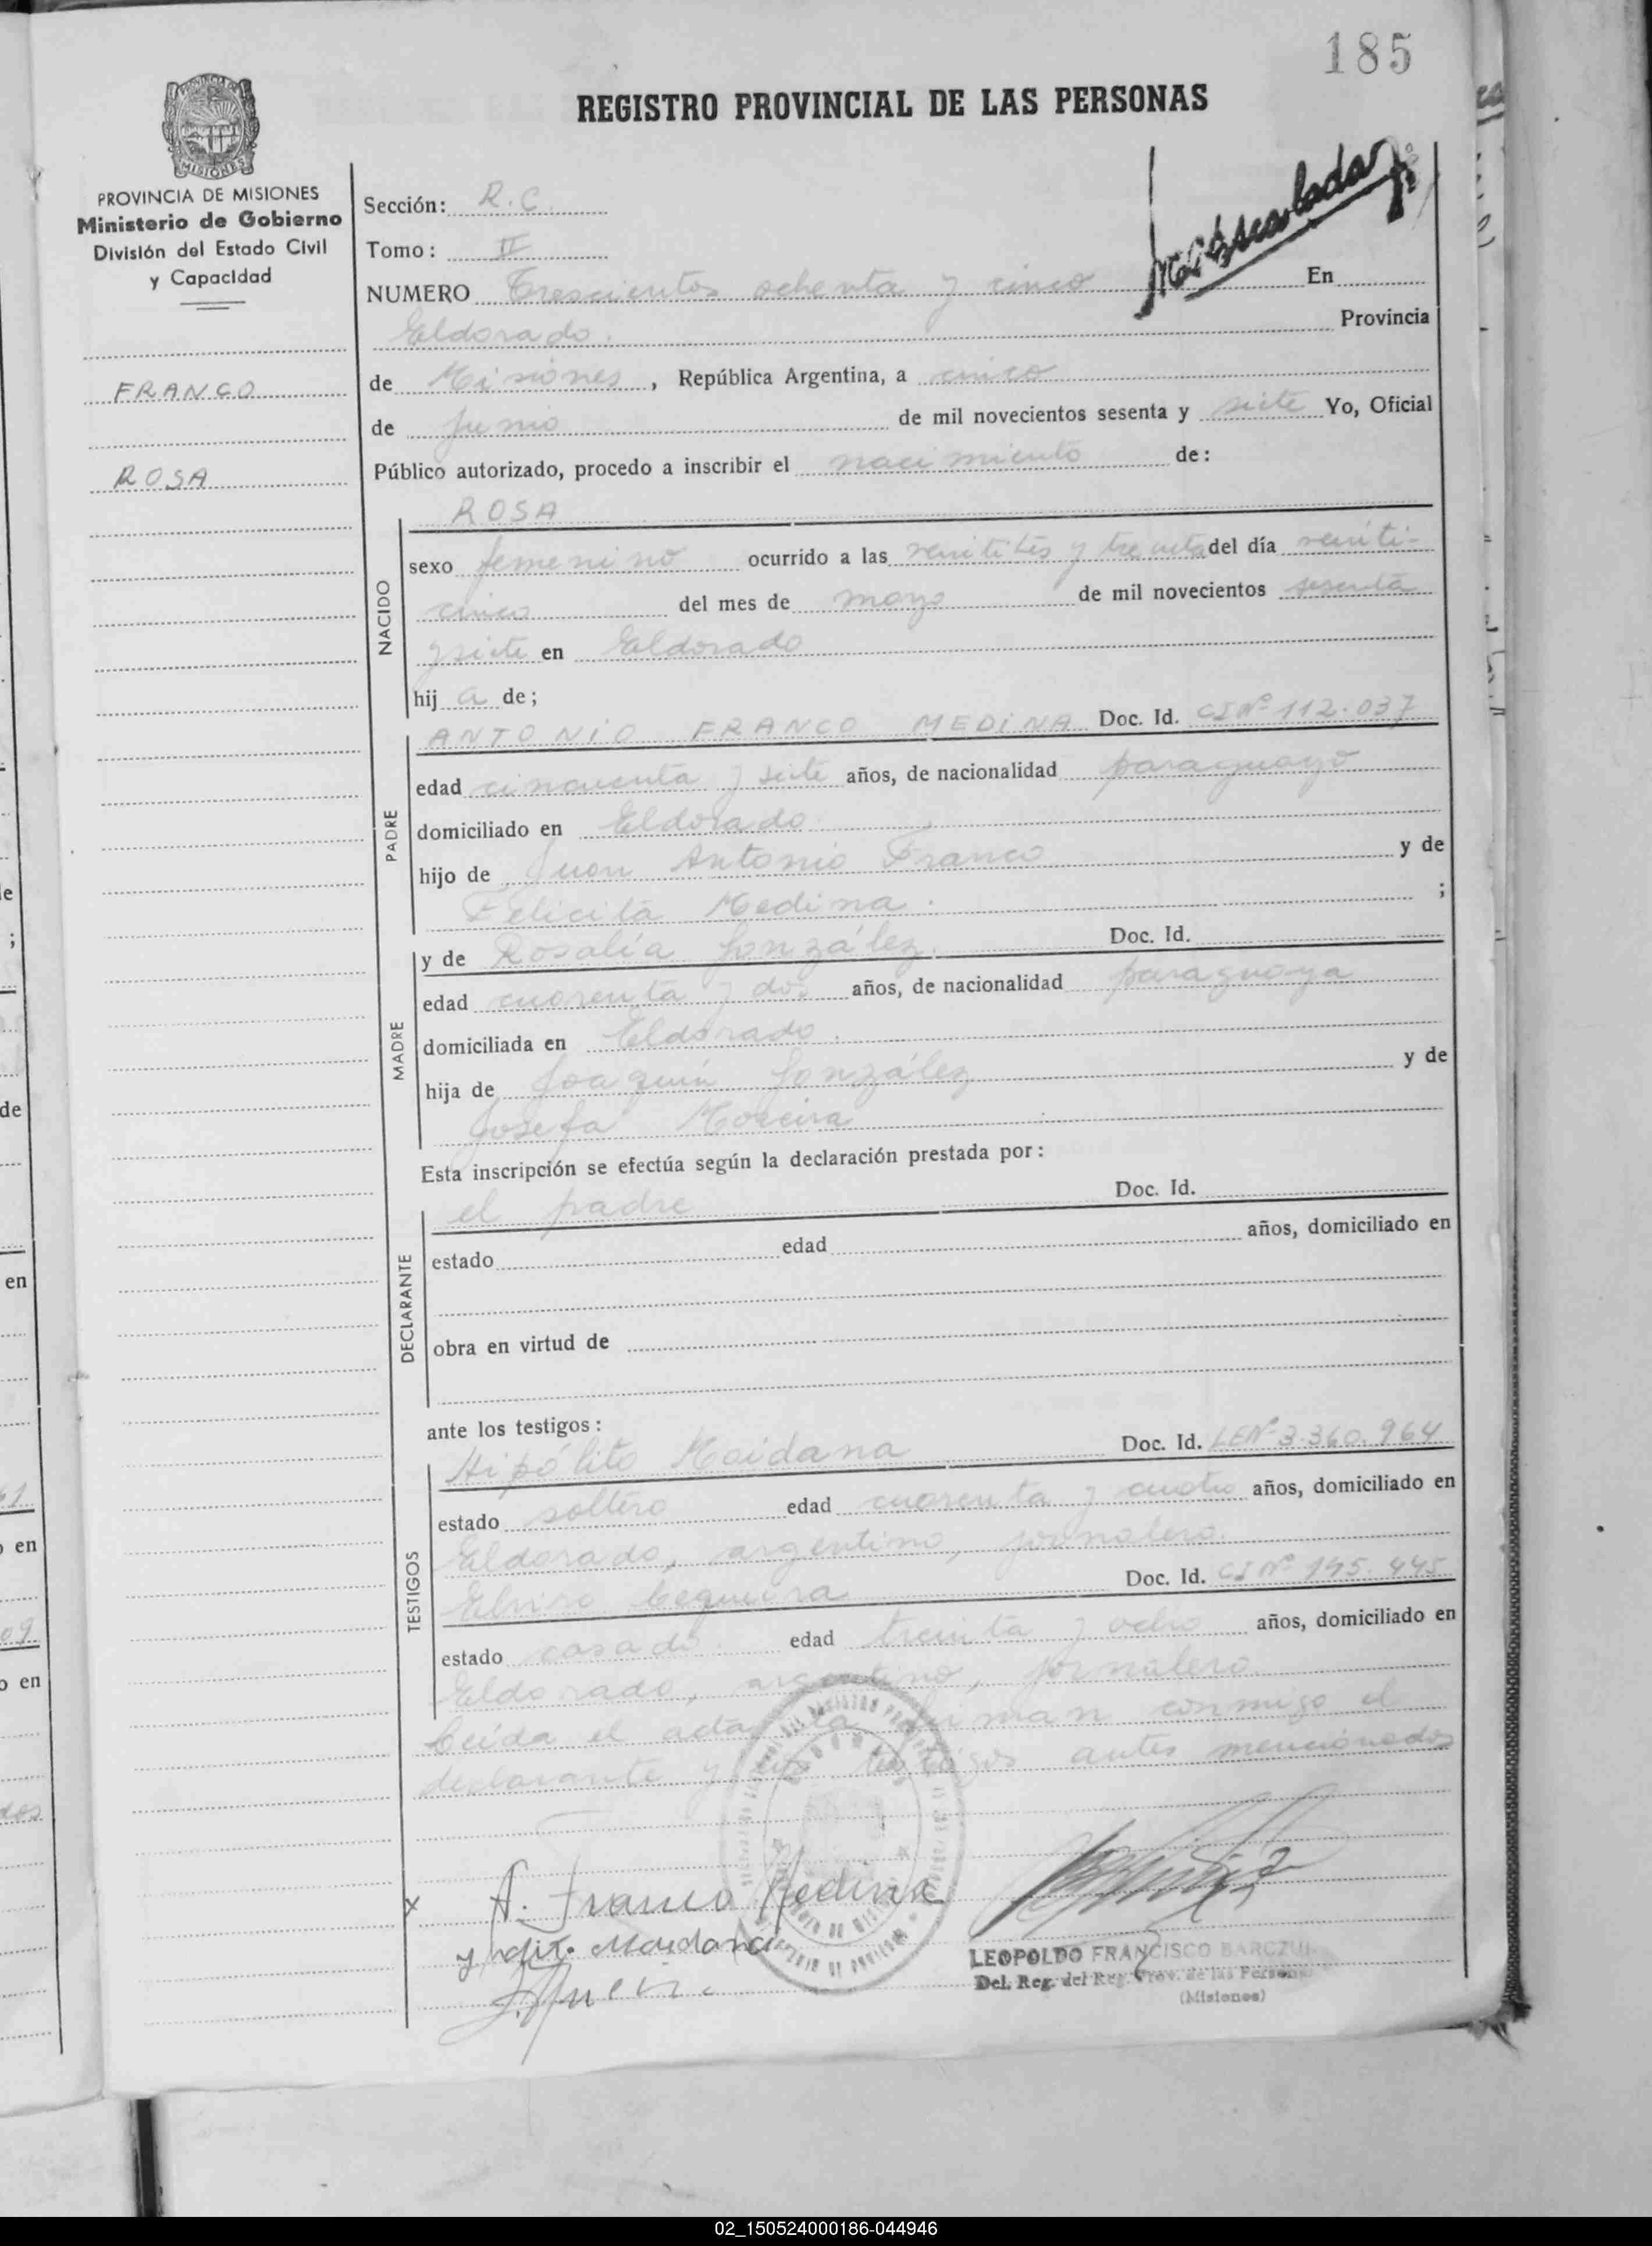 185
REGISTRO PROVINCIAL DE LAS PERSONAS
PROVINCIA DE MISIONES
Ministerio de Gobierno
División del Estado Civil
y Capacidad
FRANCO
ROSA
Sección: R.C.
Tomo: II
NUMERO Trescientos ochenta y cinco En
Eldorado. Provincia
de Misiones, República Argentina, a cinco
de junio de mil novecientos sesenta y siete Yo, Oficial
Público autorizado, procedo a inscribir el nacimiento de:
NACIDO
ROSA
sexo femenino ocurrido a las veintitrés y treinta del día veinti-
cinco del mes de mayo de mil novecientos sesenta
y siete en Eldorado
hij a de;
PADRE
ANTONIO FRANCO MEDINA Doc. Id. CI Nº 112.037
edad cincuenta y siete años, de nacionalidad paraguayo
domiciliado en Eldorado
hijo de Juan Antonio Franco y de
Felicita Medina. ;
MADRE
y de Rosalía González. Doc. Id.
edad cuarenta y dos años, de nacionalidad paraguaya
domiciliada en Eldorado.
hija de Joaquín González y de
Josefa Moreira
Esta inscripción se efectúa según la declaración prestada por:
DECLARANTE
el padre Doc. Id.
estado edad años, domiciliado en
obra en virtud de
ante los testigos:
TESTIGOS
Hipólito Maidana Doc. Id. LE Nº 3.360.964
estado soltero edad cuarenta y cuatro años, domiciliado en
Eldorado, argentino, jornalero.
Doc. Id. CI Nº 195.445
estado casado edad treinta y ocho años, domiciliado en
Eldorado, argentino, jornalero.
Leída el acta, la firman conmigo el
declarante y los testigos antes mencionados
A. Franco Medina
Maidana
LEOPOLDO FRANCISCO
Del. Reg. del Reg. Prov. de las Personas
(Misiones)
02_150524000186-044946